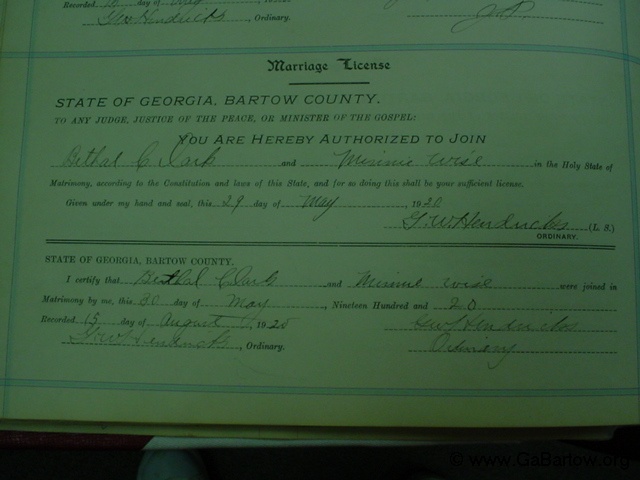 Recorded 15 day of May
Geo Hendricks, Ordinary. J.P.
Marriage License
STATE OF GEORGIA, BARTOW COUNTY.
TO ANY JUDGE, JUSTICE OF THE PEACE, OR MINISTER OF THE GOSPEL:
YOU ARE HEREBY AUTHORIZED TO JOIN
Bethal Clark and Minnie Wise in the Holy State of
Matrimony, according to the Constitution and laws of this State, and for so doing this shall be your sufficient license.
Given under my hand and seal, this 29 day of May, 1920
G.W. Hendricks (L. S.)
ORDINARY.
STATE OF GEORGIA, BARTOW COUNTY.
I certify that Bethal Clark and Minnie Wise were joined in
Matrimony by me, this 30 day of May Nineteen Hundred and 20
Recorded 15 day of August 1920 Geo W Hendricks
G.W. Hendricks, Ordinary. Ordinary
© www.GaBartow.org